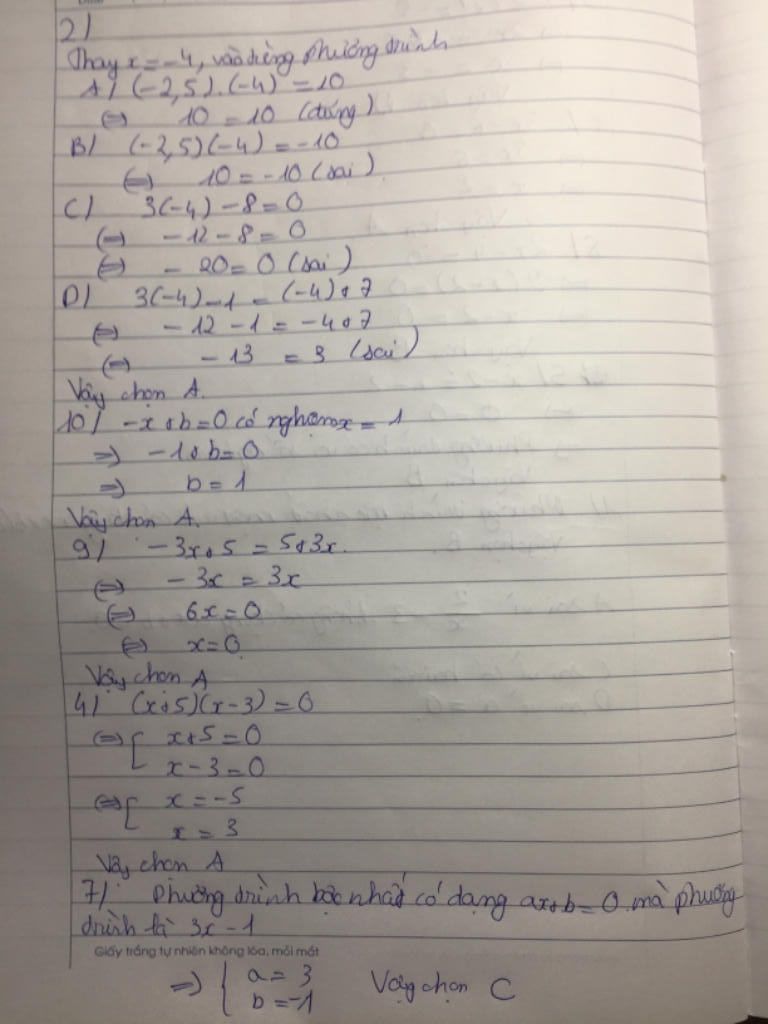 2)
Thay x = -4, vào từng phương trình
A) (-2,5).(-4) = 10
⇔ 10 = 10 (đúng)
B) (-2,5)(-4) = -10
⇔ 10 = -10 (sai)
C) 3(-4) - 8 = 0
⇔ -12 - 8 = 0
⇔ - 20 = 0 (sai)
D) 3(-4) - 1 = (-4) + 7
⇔ -12 - 1 = -4 + 7
⇔ -13 = 3 (sai)
Vậy chọn A.
10) -x + b = 0 có nghiệm x = 1
⇒ -1 + b = 0
⇒ b = 1
Vậy chọn A.
9) -3x + 5 = 5 + 3x.
⇔ - 3x = 3x
⇔ 6x = 0
⇔ x = 0
Vậy chọn A
4) (x + 5)(x - 3) = 0
⇔ [ x + 5 = 0
x - 3 = 0
⇔ [ x = -5
x = 3
Vậy chọn A
7) Phương trình bậc nhất có dạng ax + b = 0 mà phương
trình là 3x - 1
Giấy trắng tự nhiên không lóa, mỏi mắt
⇒ { a = 3 Vậy chọn C
b = -1